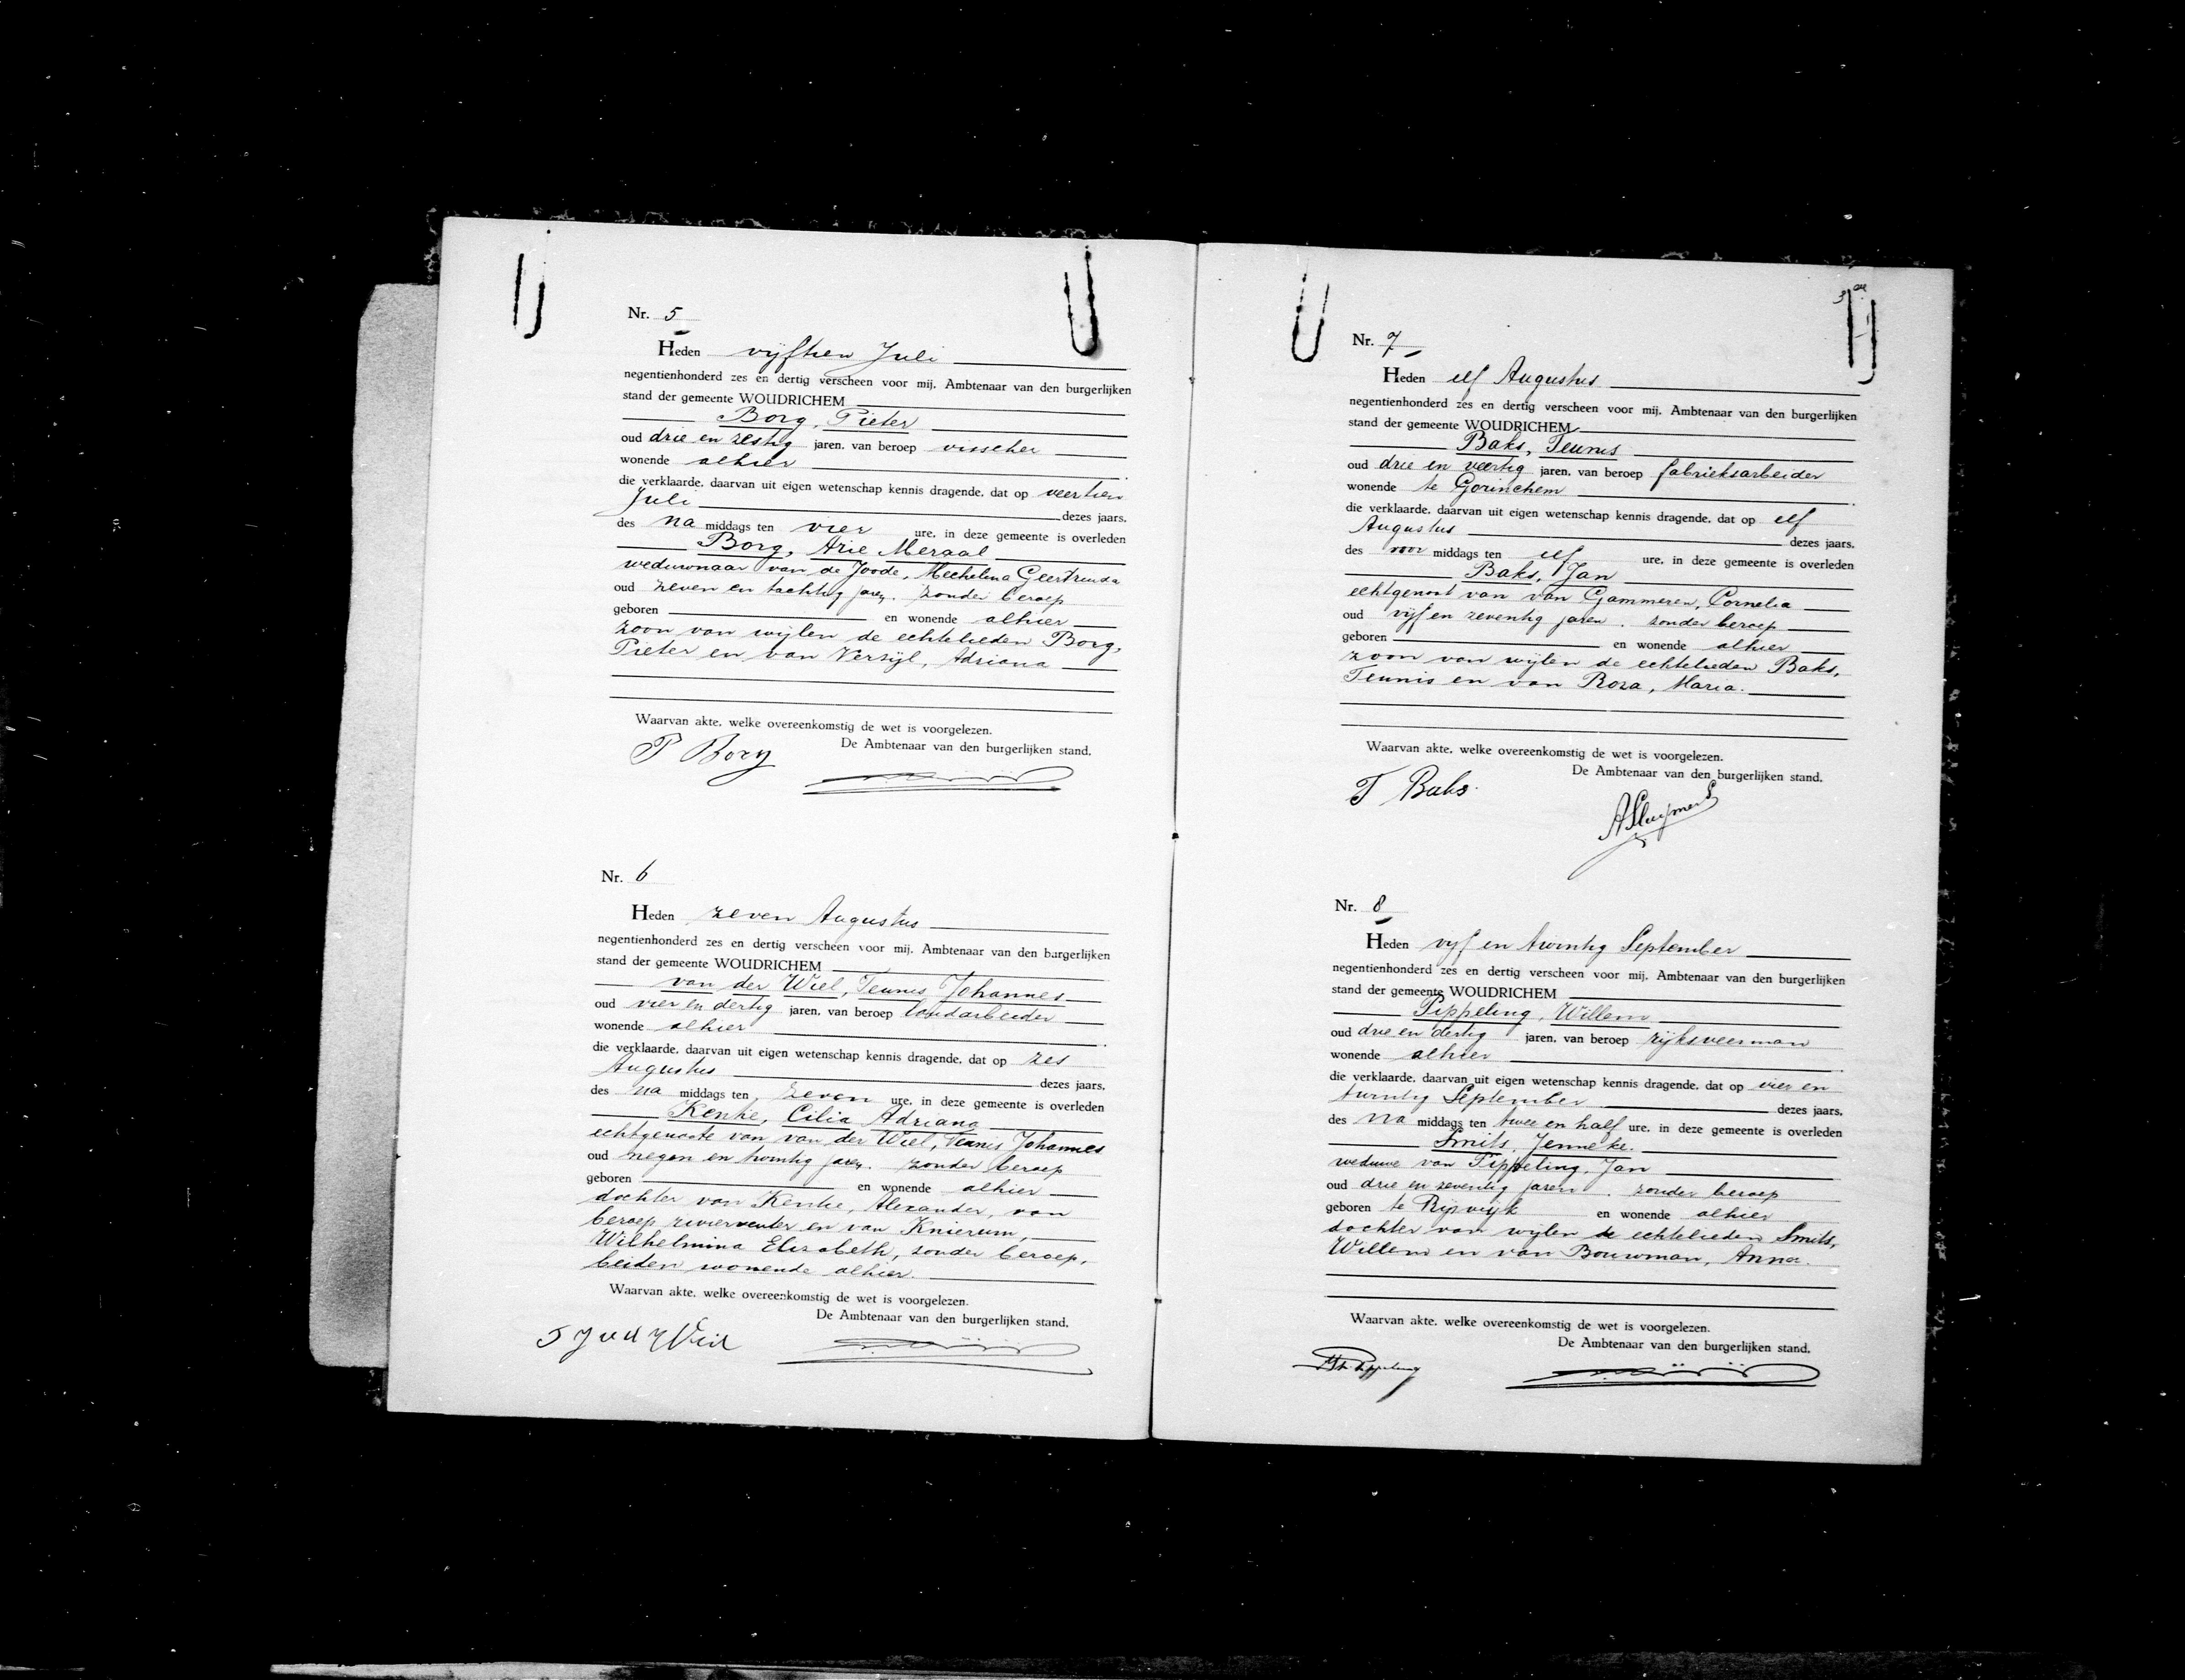 Nr. 5
Heden vijftien Juli
negentienhonderd zes en dertig verscheen voor mij, Ambtenaar van den burgerlijken
stand der gemeente WOUDRICHEM
Borg, Pieter
oud drie en zestig jaren, van beroep visscher
wonende alhier
die verklaarde, daarvan uit eigen wetenschap kennis dragende, dat op veertien
Juli dezes jaars,
des na middags ten vier ure, in deze gemeente is overleden
Borg, Arie Meraal
weduwnaar van de Joode, Mechelina Geertruida
oud zeven en tachtig jaren, zonder beroep
geboren en wonende alhier
zoon van wijlen de echtelieden Borg,
Pieter en van Versijl, Adriana
Waarvan akte, welke overeenkomstig de wet is voorgelezen.
De Ambtenaar van den burgerlijken stand,
P Borg
Nr. 6
Heden zeven Augustus
negentienhonderd zes en dertig verscheen voor mij, Ambtenaar van den burgerlijken
stand der gemeente WOUDRICHEM
van der Wiel, Teunis Johannes
oud vier en dertig jaren, van beroep landarbeider
wonende alhier
die verklaarde, daarvan uit eigen wetenschap kennis dragende, dat op zes
Augustus dezes jaars,
des na middags ten zeven ure, in deze gemeente is overleden
Kentie, Cilia Adriana
echtgenoote van van der Wiel, Teunis Johannes
oud negen en twintig jaren, zonder beroep
geboren en wonende alhier
dochter van Kentie, Alexander, van
beroep rivierventer en van Knierum,
Wilhelmina Elizabeth, zonder beroep,
beiden wonende alhier.
Waarvan akte, welke overeenkomstig de wet is voorgelezen.
De Ambtenaar van den burgerlijken stand,
T J v d Wiel
Nr. 7
Heden elf Augustus
negentienhonderd zes en dertig verscheen voor mij, Ambtenaar van den burgerlijken
stand der gemeente WOUDRICHEM
Baks, Teunis
oud drie en veertig jaren, van beroep fabrieksarbeider
wonende te Gorinchem
die verklaarde, daarvan uit eigen wetenschap kennis dragende, dat op elf
Augustus dezes jaars,
des voor middags ten elf ure, in deze gemeente is overleden
Baks, Jan
echtgenoot van van Gammeren, Cornelia
oud vijf en zeventig jaren, zonder beroep
geboren en wonende alhier
zoon van wijlen de echtelieden Baks,
Teunis en van Roza, Maria.
Waarvan akte, welke overeenkomstig de wet is voorgelezen.
De Ambtenaar van den burgerlijken stand,
T Baks.
Nr. 8
Heden vijf en twintig September
negentienhonderd zes en dertig verscheen voor mij, Ambtenaar van den burgerlijken
stand der gemeente WOUDRICHEM
Pippeling, Willem
oud drie en dertig jaren, van beroep rijksveerman
wonende alhier
die verklaarde, daarvan uit eigen wetenschap kennis dragende, dat op vier en
twintig September dezes jaars,
des na middags ten twee en half ure, in deze gemeente is overleden
Smits, Jenneke.
weduwe van Pippeling, Jan
oud drie en zeventig jaren, zonder beroep
geboren te Rijswijk en wonende alhier
dochter van wijlen de echtelieden Smits,
Willem en van Bouwman, Anna.
Waarvan akte, welke overeenkomstig de wet is voorgelezen.
De Ambtenaar van den burgerlijken stand,